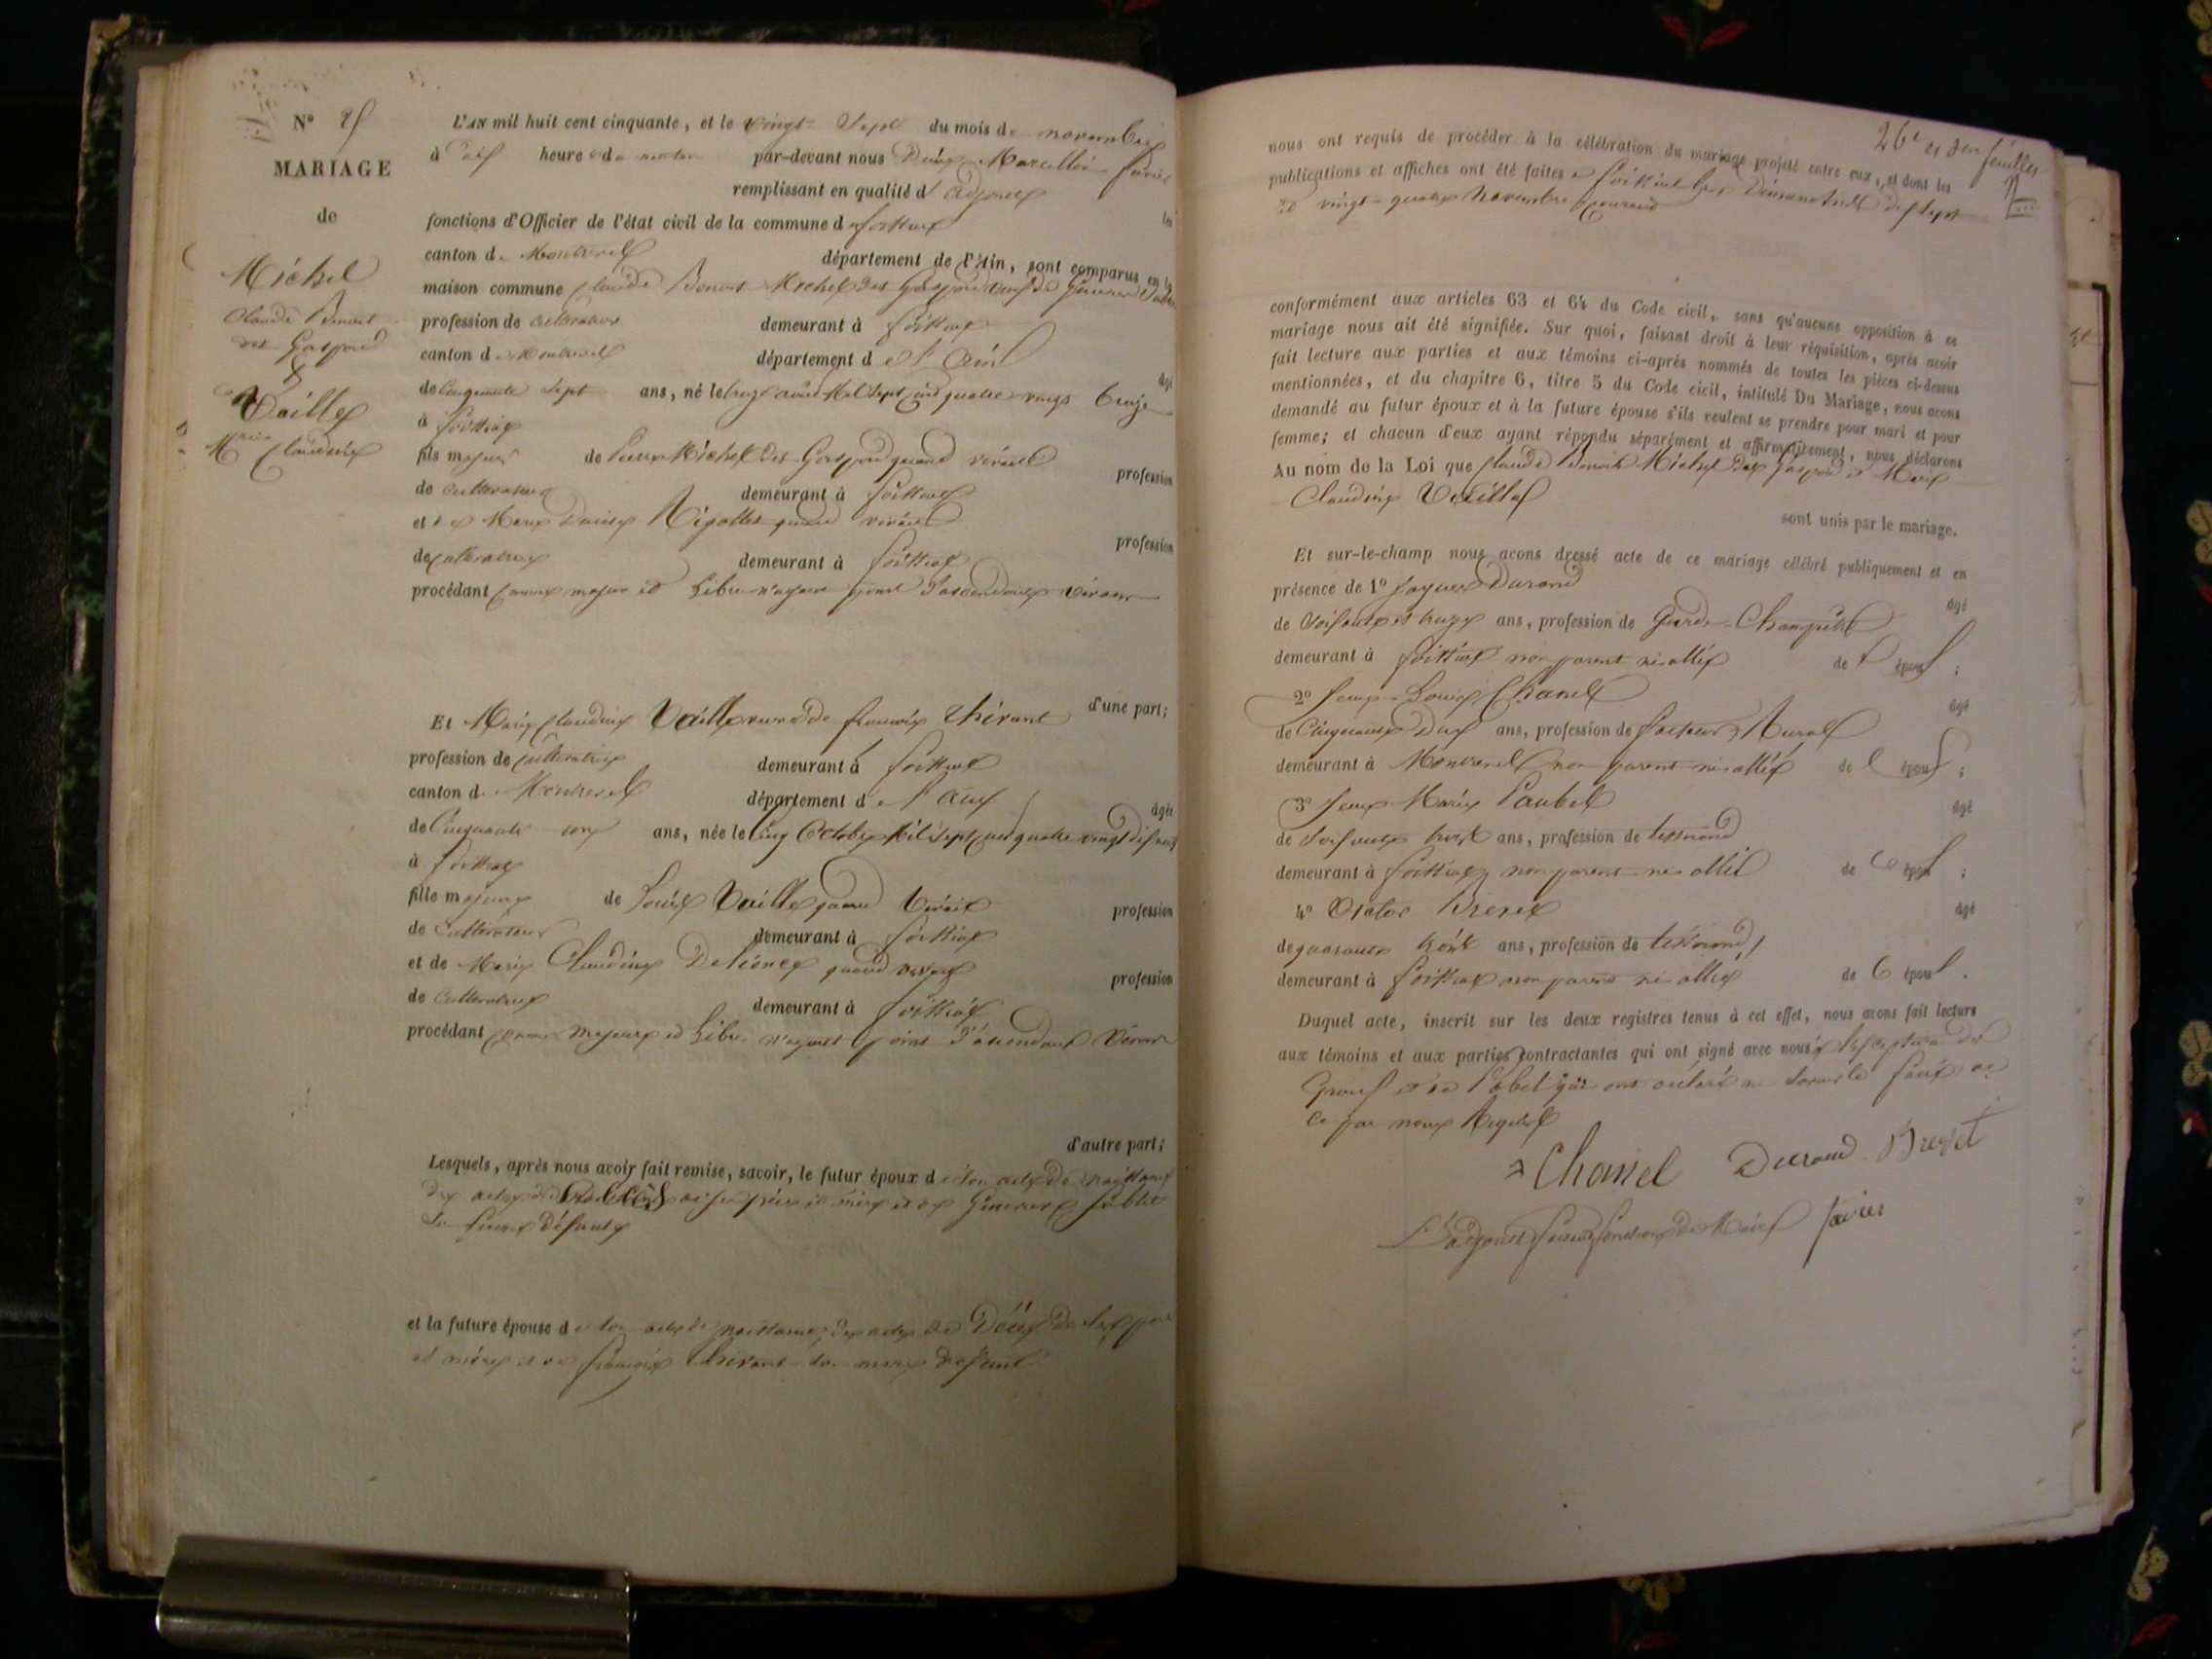 N°
MARIAGE
de
Michel
Claude Benoit
des Gaspard
&
Vaille
Marie Claudine
L'AN mil huit cent cinquante, et le vingt Sept du mois de novembre
à heure du matin par-devant nous Marcellin
remplissant en qualité d'adjoint les
fonctions d'Officier de l'état civil de la commune de foissiat
canton de Montrevel département de l'Ain, sont comparus en la
maison commune Claude Benoit Michel des Gaspard veuf de
profession de cultivateur demeurant à foissiat
canton de Montrevel département de l'Ain âgé
de Cinquante Sept ans, né le août Mil Sept cent quatre vingt treize
à foissiat
fils majeur de Pierre Michel des Gaspard quand vivait profession
de cultivateur demeurant à foissiat
et de Marie Rigollet quand vivait profession
de cultivatrice demeurant à foissiat
procédant comme majeur et Libre n'ayant point d'ascendants vivants
d'une part;
Et Marie Claudine Vaille veuve de françois Chirant
profession de cultivatrice demeurant à foissiat
canton de Montrevel département de l'Ain âgée
de Cinquante ans, née le cinq Octobre Mil Sept cent quatre vingt dix neuf
à foissiat
fille majeure de Louis Vaille quand vivait profession
de Cultivateur demeurant à foissiat
et de Marie Claudine quand vivait profession
de cultivatrice demeurant à foissiat
procédant comme majeure et Libre n'ayant point d'ascendant vivant
d'autre part;
Lesquels, après nous avoir fait remise, savoir, le futur époux de son acte de naissance
des actes de décès de ses père et mère et de
sa femme défunte
et la future épouse de son acte de naissance, des actes de Décès de ses père
et mère et de françois Chirant son mari défunt
26e et der feuillet
nous ont requis de procéder à la célébration du mariage projeté entre eux, et dont les
publications et affiches ont été faites à foissiat les Dimanches dix sept
et vingt quatre novembre courant
conformément aux articles 63 et 64 du Code civil, sans qu'aucune opposition à ce
mariage nous ait été signifiée. Sur quoi, faisant droit à leur réquisition, après avoir
fait lecture aux parties et aux témoins ci-après nommés de toutes les pièces ci-dessus
mentionnées, et du chapitre 6, titre 5 du Code civil, intitulé Du Mariage, nous avons
demandé au futur époux et à la future épouse s'ils veulent se prendre pour mari et pour
femme; et chacun d'eux ayant répondu séparément et affirmativement, nous déclarons
Au nom de la Loi que Claude Benoit Michel des Gaspard et Marie
Claudine Vaille
sont unis par le mariage.
Et sur-le-champ nous avons dressé acte de ce mariage célébré publiquement et en
présence de 1° Jaques Durand âgé
de Soixante et treize ans, profession de Garde-Champêtre
demeurant à foissiat non parent ni allié des époux;
2° Jean Louis Chanel âgé
de Cinquante Deux ans, profession de facteur Rural
demeurant à Montrevel non parent ni allié des époux;
3° Jean Marie Paubel âgé
de Soixante trois ans, profession de tisserand
demeurant à foissiat non parent ni allié des époux;
4° Victor Brevet âgé
de quarante trois ans, profession de tisserand
demeurant à foissiat non parent ni allié des époux.
Duquel acte, inscrit sur les deux registres tenus à cet effet, nous avons fait lecture
aux témoins et aux parties contractantes qui ont signé avec nous à l'exception des
époux et de qui ont déclaré ne savoir le faire de
ce par nous Requis
Chanel Durand Brevet
L'adjoint faisant fonctions de Maire favier